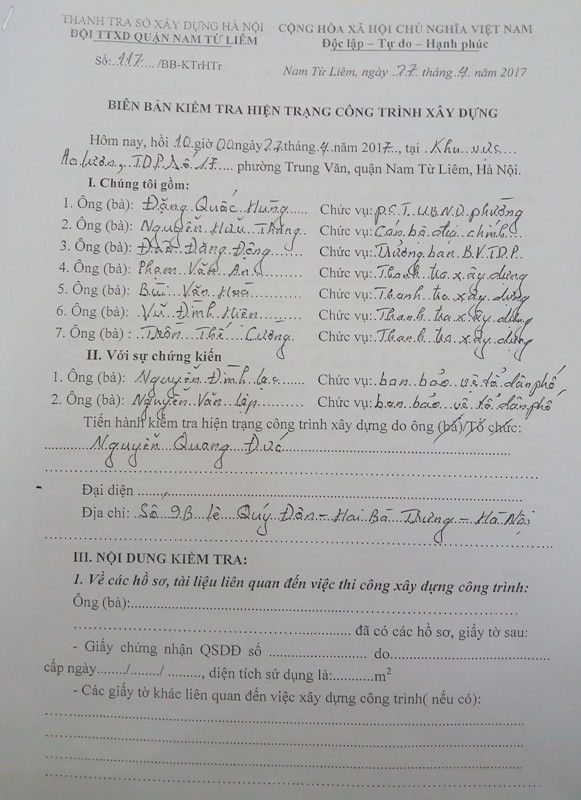 THANH TRA SỞ XÂY DỰNG HÀ NỘI
ĐỘI TTXD QUẬN NAM TỪ LIÊM
Số: 117 /BB-KTrHTr
CỘNG HÒA XÃ HỘI CHỦ NGHĨA VIỆT NAM
Độc lập – Tự do – Hạnh phúc
Nam Từ Liêm, ngày 27 tháng 4 năm 2017
BIÊN BẢN KIỂM TRA HIỆN TRẠNG CÔNG TRÌNH XÂY DỰNG
Hôm nay, hồi 10 giờ 00 ngày 27 tháng 4 năm 2017, tại Khu vực
T.D.P Số 17 phường Trung Văn, quận Nam Từ Liêm, Hà Nội.
I. Chúng tôi gồm:
1. Ông (bà): Đặng Quốc Hùng Chức vụ: P.C.T. U.B.N.D. phường
2. Ông (bà): Nguyễn Hữu Thắng Chức vụ: Cán bộ địa chính
3. Ông (bà): Đăng Chức vụ: Trưởng ban B.V.T.D.P.
4. Ông (bà): Phạm Văn An Chức vụ: Thanh tra xây dựng
5. Ông (bà): Bùi Văn Hoà Chức vụ: Thanh tra xây dựng
6. Ông (bà): Vũ Đình Hiên Chức vụ: Thanh tra xây dựng
7. Ông (bà) : Trần Thế Cường Chức vụ: Thanh tra xây dựng
II. Với sự chứng kiến
1. Ông (bà): Nguyễn Đình Chức vụ: ban bảo vệ tổ dân phố
2. Ông (bà): Nguyễn Văn Chức vụ: ban bảo vệ tổ dân phố
Tiến hành kiểm tra hiện trạng công trình xây dựng do ông (bà)/Tổ chức:
Nguyễn Quang Đức
Đại diện
Địa chỉ: Số 9B Lê Quý Đôn – Hai Bà Trưng – Hà Nội
III. NỘI DUNG KIỂM TRA:
1. Về các hồ sơ, tài liệu liên quan đến việc thi công xây dựng công trình:
Ông (bà):
đã có các hồ sơ, giấy tờ sau:
- Giấy chứng nhận QSDĐ số do
cấp ngày / / , diện tích sử dụng là: m²
- Các giấy tờ khác liên quan đến việc xây dựng công trình( nếu có):